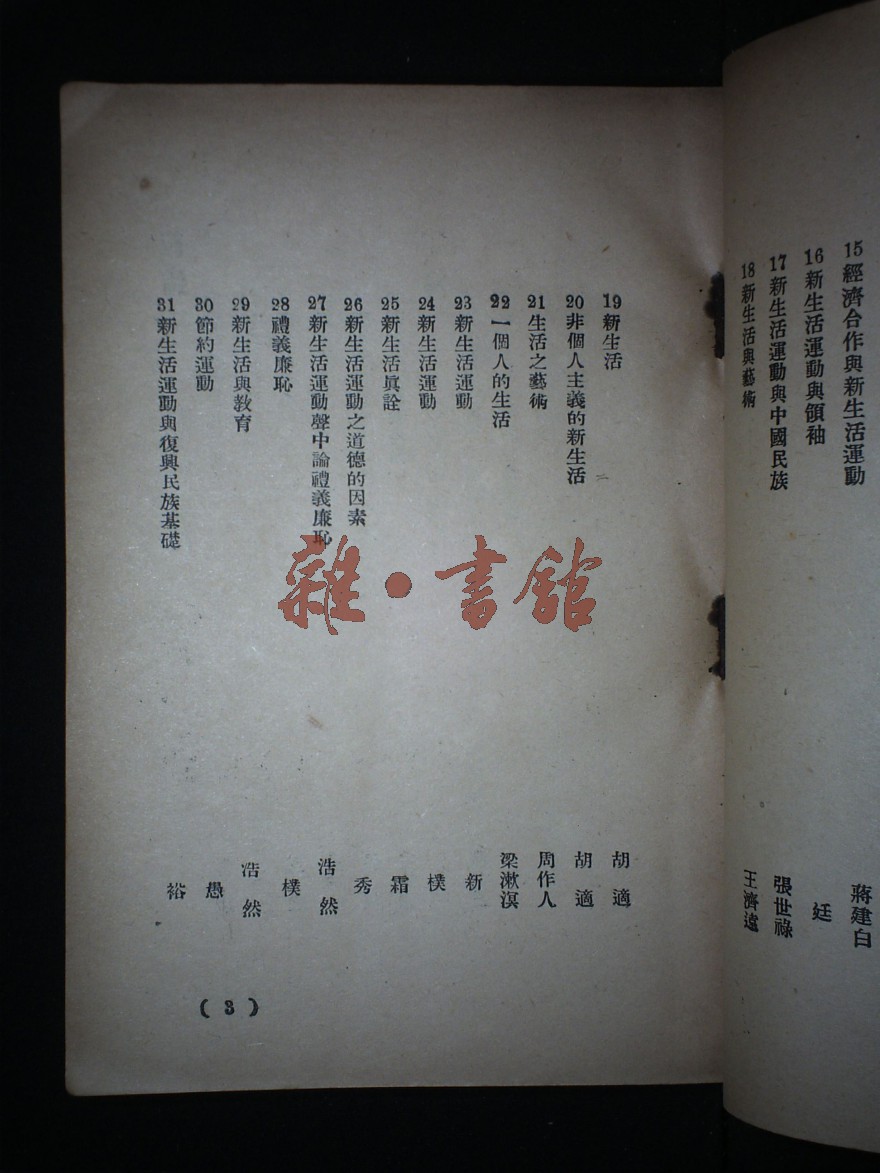 15 經濟合作與新生活運動 蔣建白
16 新生活運動與領袖 廷
17 新生活運動與中國民族 張世祿
18 新生活與藝術 王濟遠
19 新生活 胡適
20 非個人主義的新生活 胡適
21 生活之藝術 周作人
22 一個人的生活 梁漱溟
23 新生活運動 新
24 新生活運動 樸
25 新生活眞詮 霜
26 新生活運動之道德的因素 秀
27 新生活運動聲中論禮義廉恥 浩然
28 禮義廉恥 樸
29 新生活與教育 浩然
30 節約運動 愚
31 新生活運動與復興民族基礎 裕
( 3 )
雜·書館